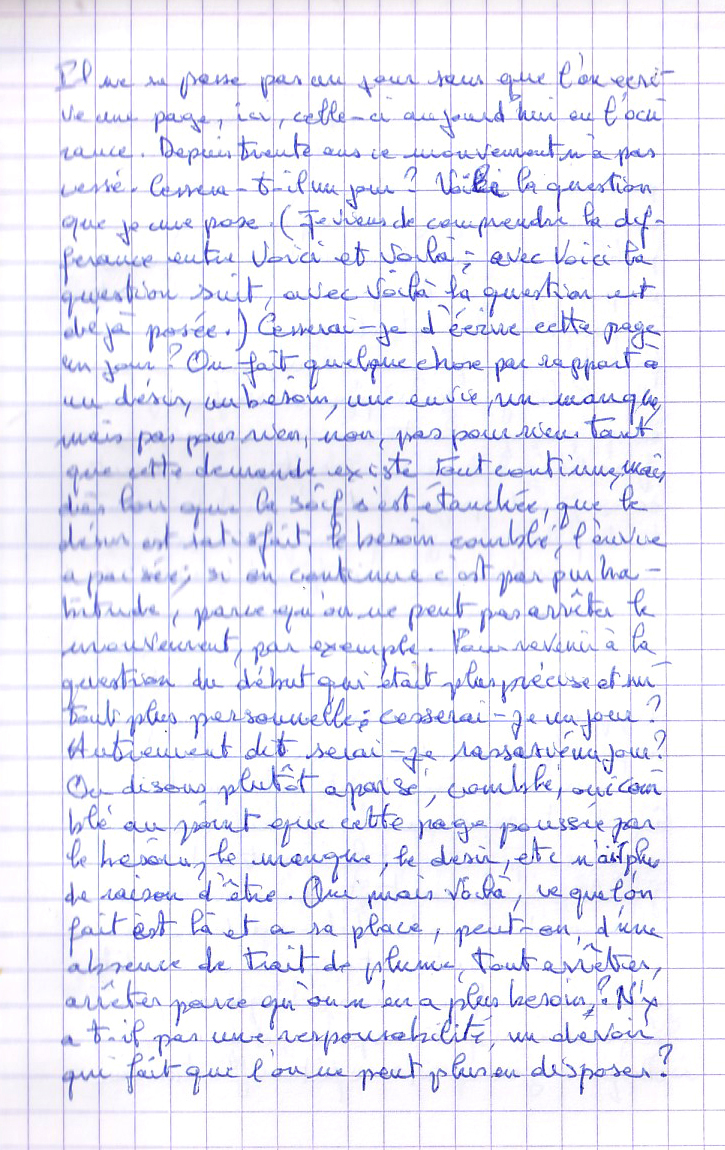 Il ne se passe pas un jour sans que l'on écri-
ve une page, ici, celle-ci aujourd'hui en l'occu
rance. Depuis trente ans ce mouvement n'a pas
cessé. Cessera-t-il un jour? Voilà la question
que je me pose. (Je viens de comprendre la dif-
férance entre Voici et Voilà; avec Voici la
question suit, avec Voilà la question est
déjà posée.) Cesserai-je d'écrire cette page
un jour? On fait quelque chose par rapport à
un désir, un besoin, une envie, un manque,
mais pas pour rien, non, pas pour rien. Tant
que cette demande existe tout continue, mais
dès lors que la soif s'est étanchée, que le
désir est satisfait, le besoin comblé, l'envie
apaisée; si on continue c'est par pur ha-
bitude, parce qu'on ne peut pas arrêter le
mouvement, par exemple. Pour revenir à la
question du début qui était plus précise et sur
tout plus personnelle; cesserai-je un jour?
Autrement dit serai-je rassasié un jour?
Ou disons plutôt apaisé, comblé, oui com
blé au point que cette page poussée par
le besoin, le manque, le désir, etc n'ait plus
de raison d'être. Oui mais Voilà, ce que l'on
fait est là et a sa place, peut-on, d'une
absence de trait de plume, tout arrêter,
arrêter parce qu'on n'en a plus besoin? N'y
a t-il pas une responsabilité, un devoir
qui fait que l'on ne peut plus en disposer?